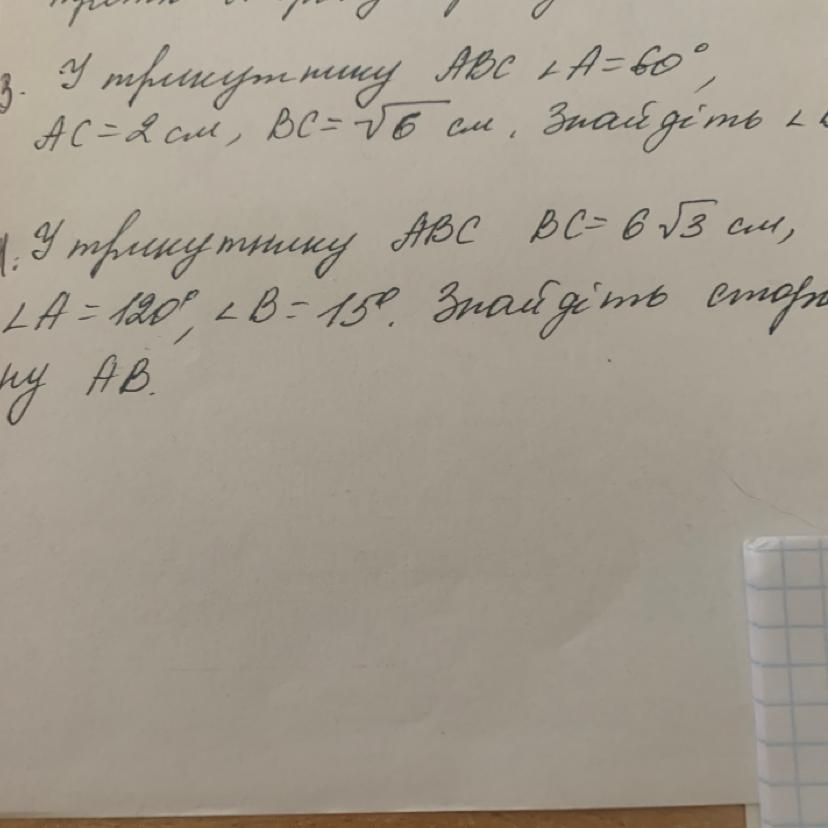 3. У трикутнику ABC ∠A=60°,
AC=2 см, BC=√6 см. Знайдіть ∠
У трикутнику ABC BC=6√3 см,
∠A=120°, ∠B=15°. Знайдіть сторо
ну AB.